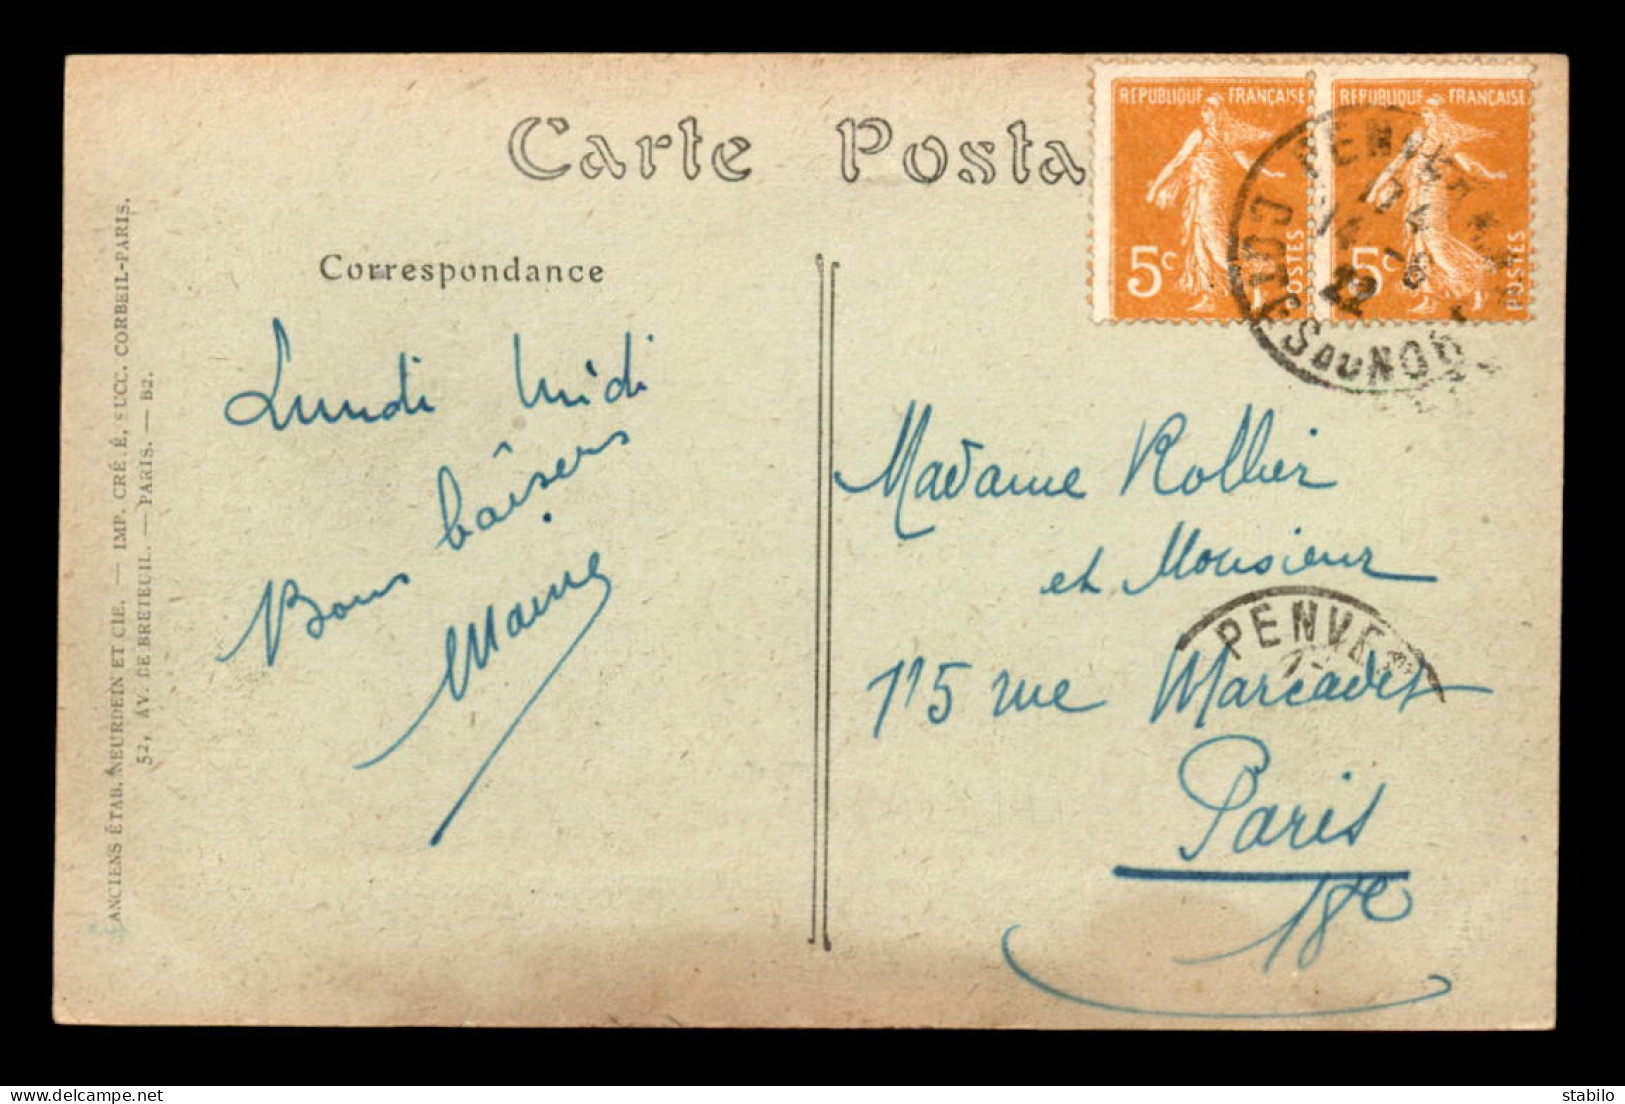 Carte Posta
Correspondance
Lundi Midi
Bons baîsers
ANCIENS ÉTAB. NEURDEIN ET CIE. — IMP. CRÉ.É, SUCC. CORBEIL-PARIS.
52, AV. DE BRETEUIL. — PARIS. — B2.
RÉPUBLIQUE FRANÇAISE
5c
POSTES
RÉPUBLIQUE FRANÇAISE
5c
POSTES
PENVEN
22
COTES DU NORD
Madame Rollier
et Monsieur
PENVE
115 rue Marcadet
Paris
18e
delcampe.net
stabilo